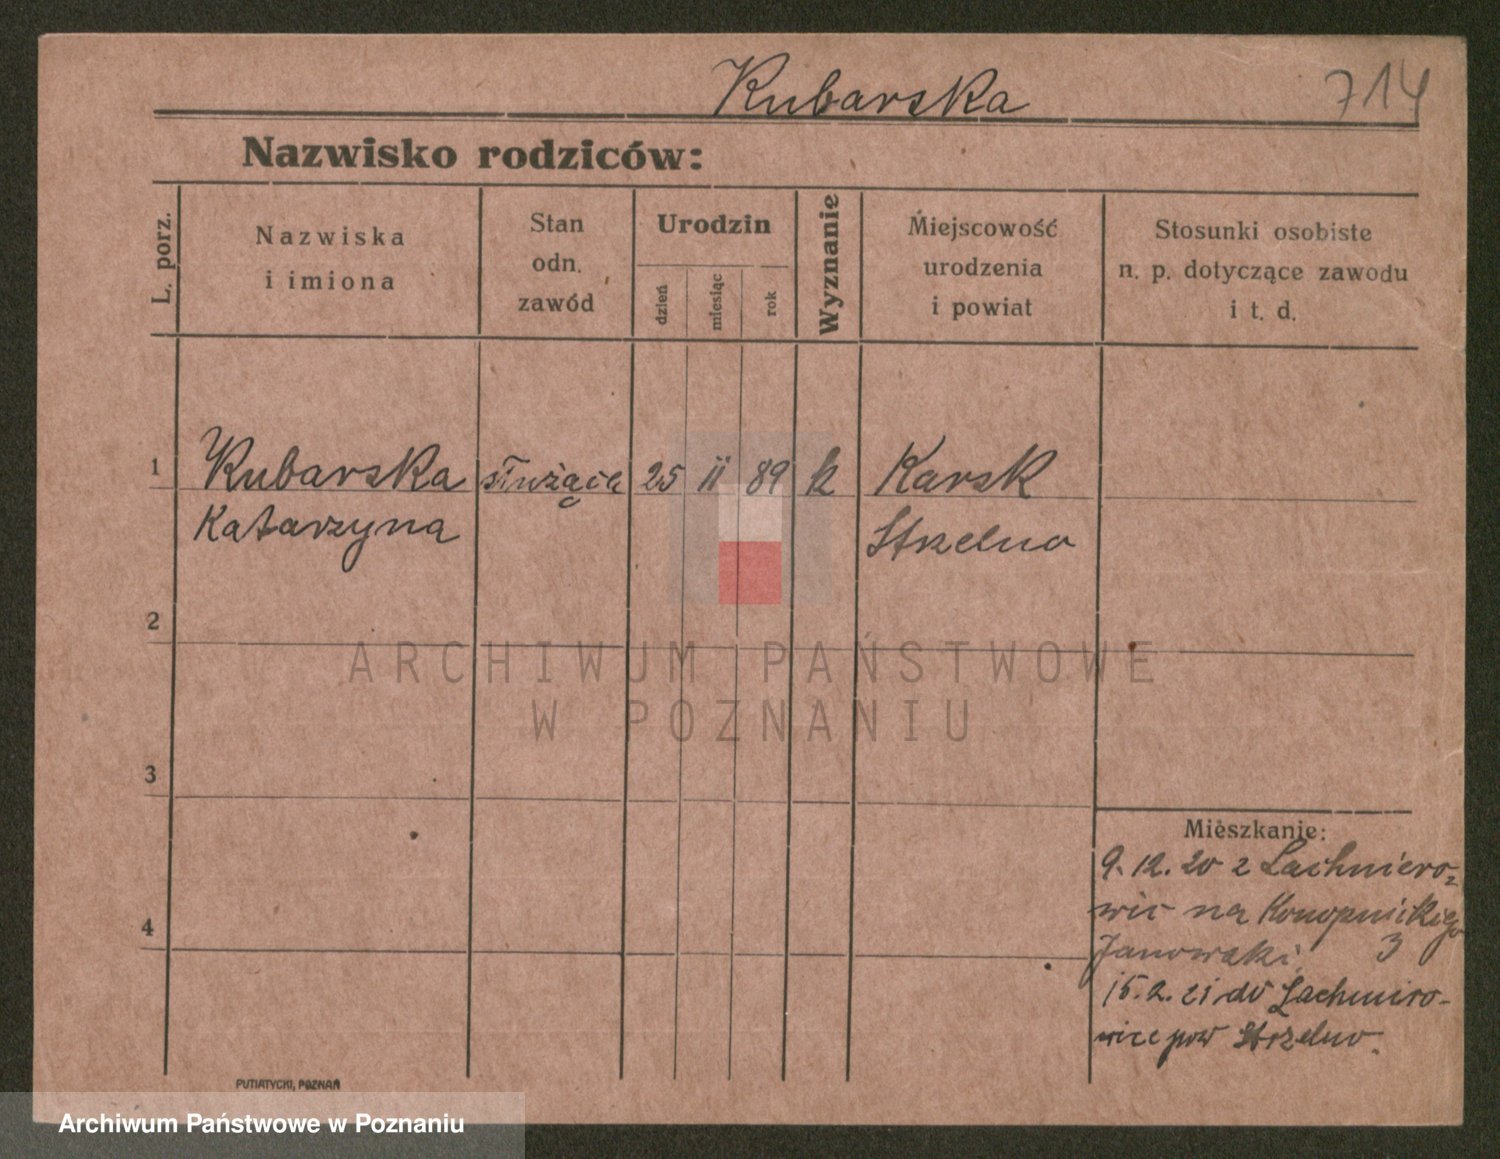 Kubarska
714
Nazwisko rodziców:
L. porz.
Nazwiska
i imiona
Stan
odn.
zawód
Urodzin
dzień
miesiąc
rok
Wyznanie
Miejscowość
urodzenia
i powiat
Stosunki osobiste
n. p. dotyczące zawodu
i t. d.
1 Kubarska służąca 25 II 89 k Karsk
Katarzyna Strzelno
2
ARCHIWUM PAŃSTWOWE
W POZNANIU
3
Mieszkanie:
9.12.20 z Lachmiero-
wic na Konopnickiej
4
Janowski 3
15.2.21 do Lachmiro-
wice pow Strzelno.
PUTIATYCKI, POZNAŃ
Archiwum Państwowe w Poznaniu